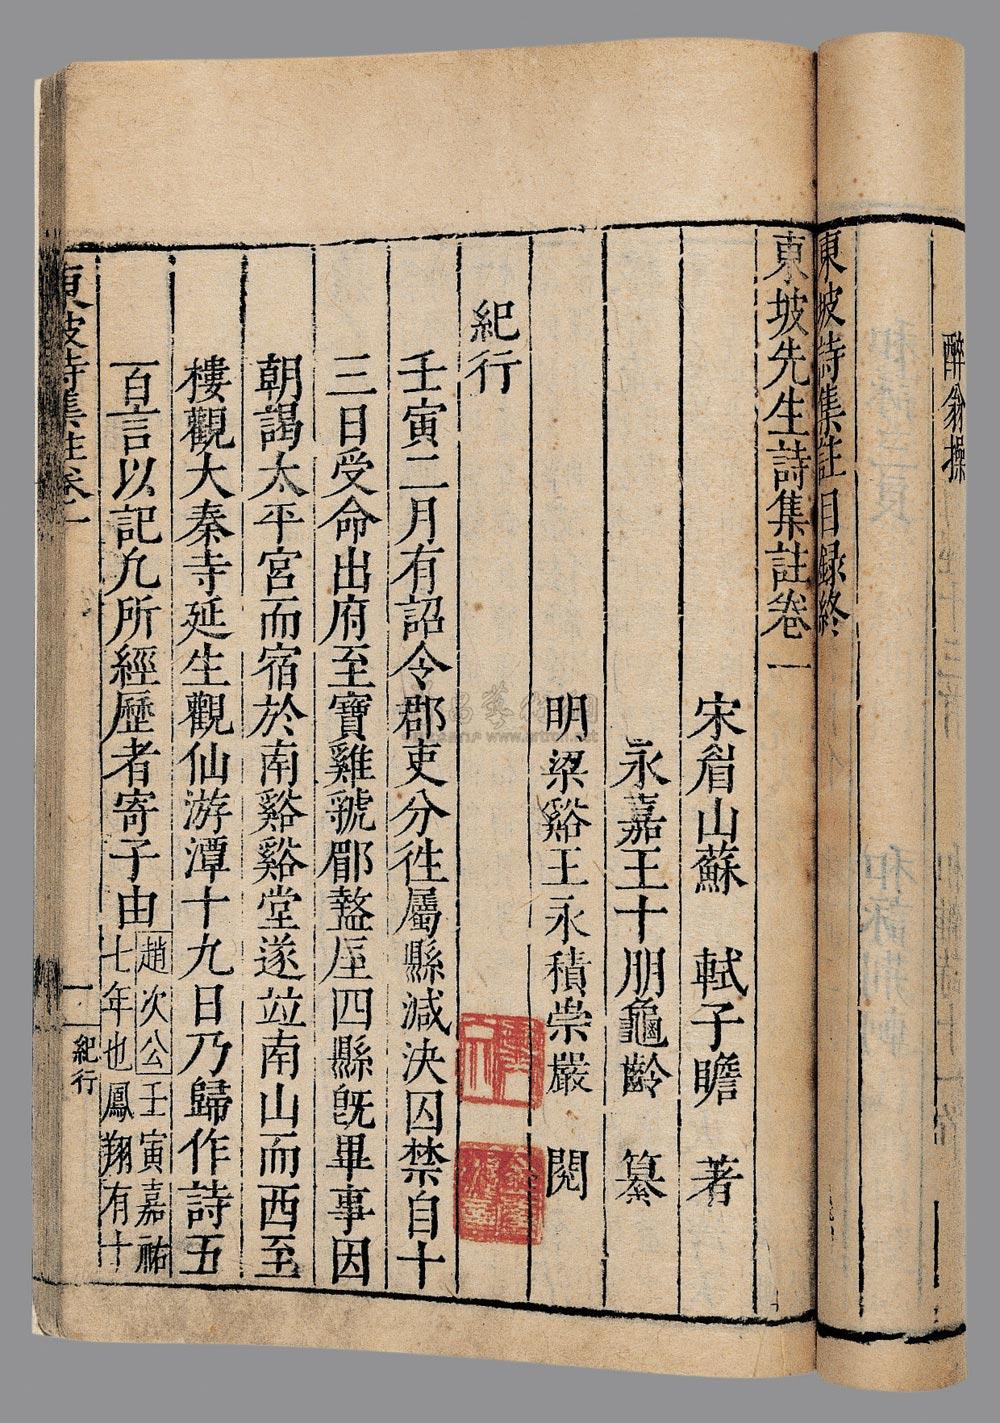 醉翁操
東坡詩集註目錄終
東坡先生詩集註卷一
宋眉山蘇 軾子瞻 著
永嘉王十朋龜齡 纂
明梁谿王永積崇巖 閱
紀行
壬寅二月有詔令郡吏分徃屬縣減決囚禁自十
三日受命出府至寶雞虢郿盩厔四縣旣畢事因
朝謁太平宮而宿於南谿谿堂遂竝南山而西至
樓觀大秦寺延生觀仙游潭十九日乃歸作詩五
百言以記凢所經歷者寄子由
趙次公壬寅嘉祐
七年也鳳翔有十
東坡詩集註卷一
紀行
一